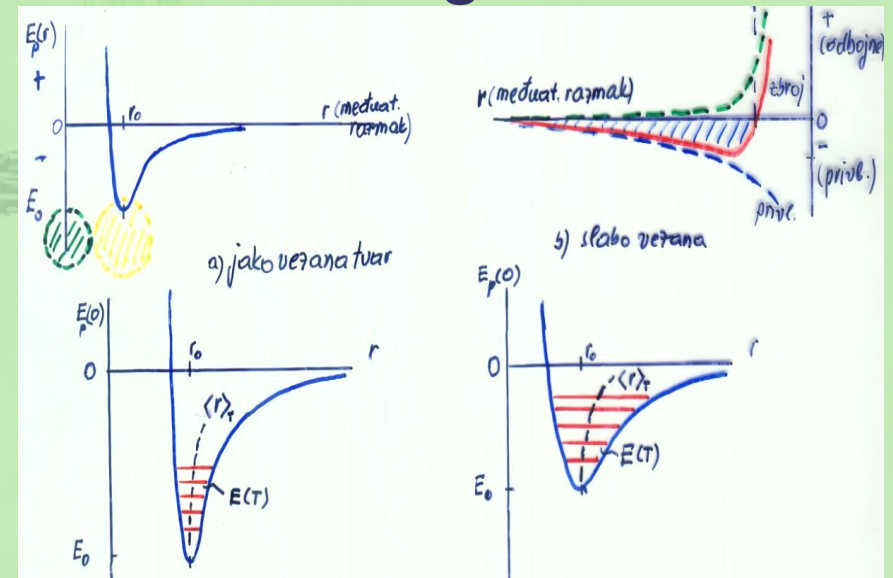 Ep(r)
+
0
-
E₀
r₀
r (međuat.
razmak)
r (međuat. razmak)
+
(odbojne)
zbroj
0
-
(privl.)
privl.
a) jako vezana tvar
b) slabo vezana
Ep(0)
0
r₀
r
⟨r⟩T
E(T)
E₀
Ep(0)
0
r₀
r
⟨r⟩T
E(T)
E₀